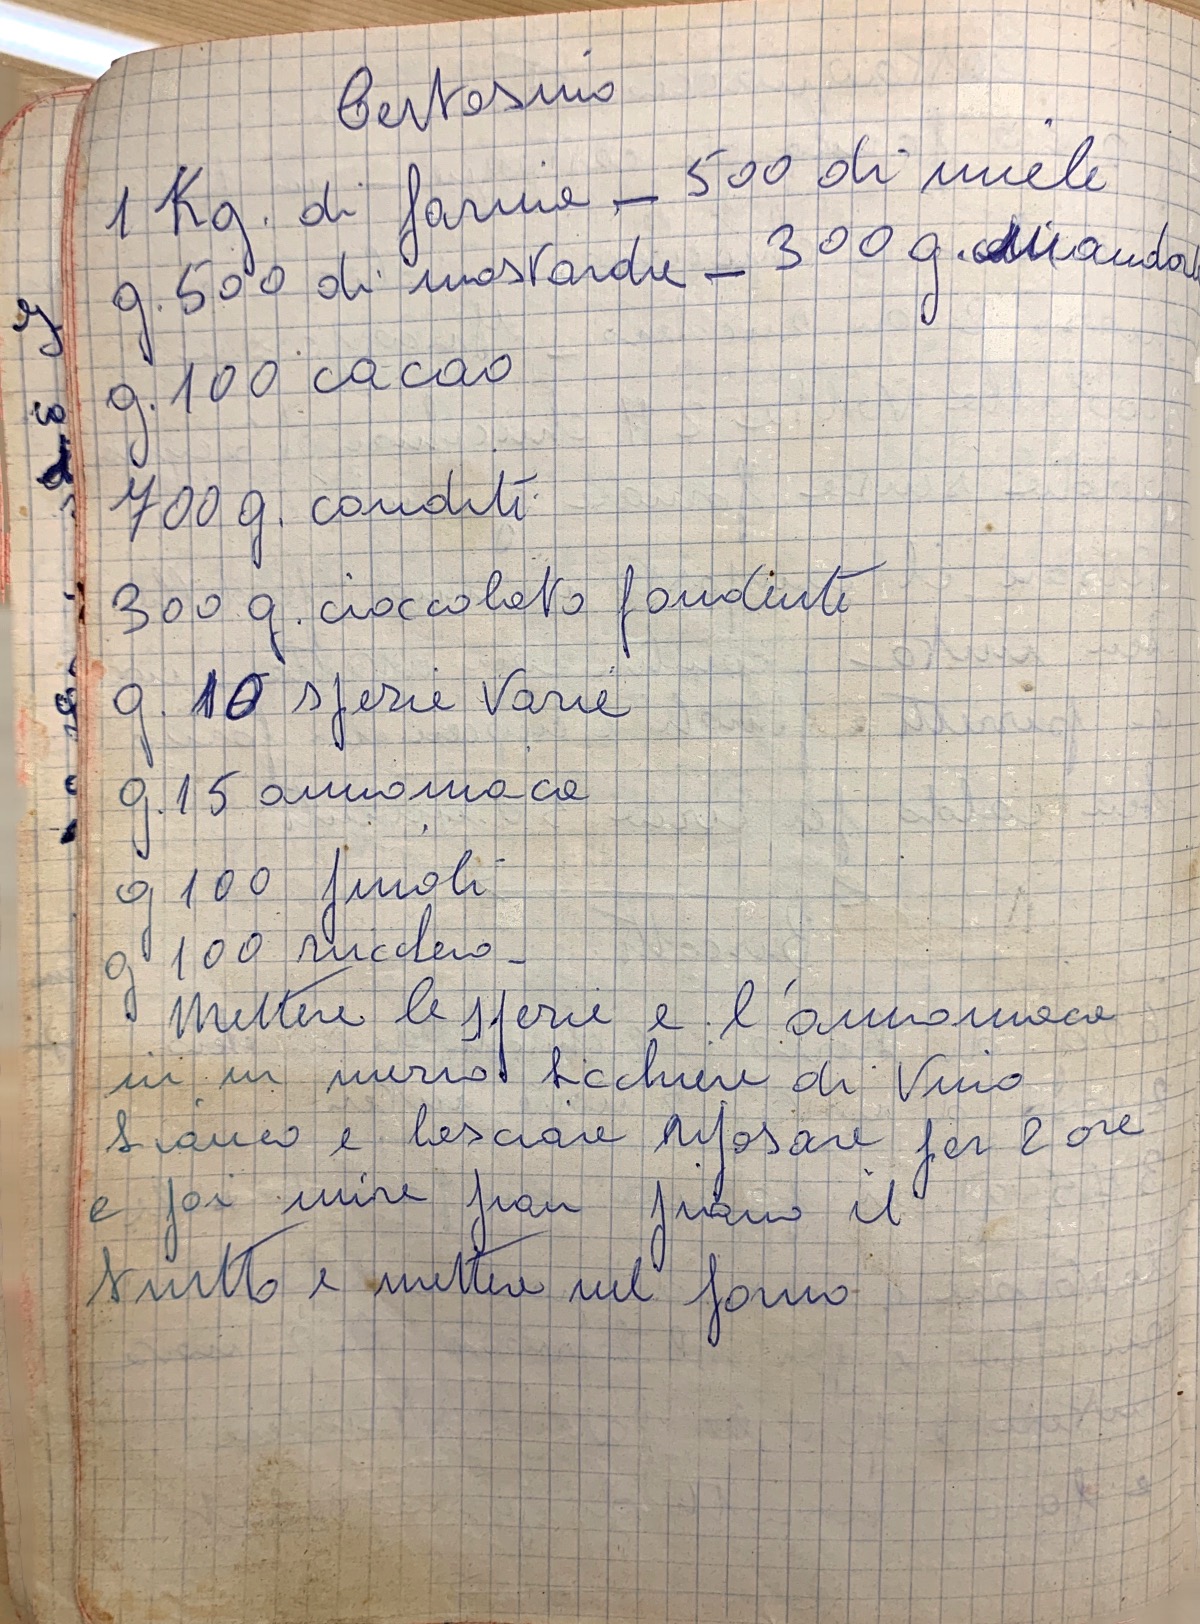 Certosino
1 Kg. di farina - 500 di miele
g. 500 di mostarda - 300 g. mandorle
g. 100 cacao
700 g. canditi
300 g. cioccolato fondente
g. 10 spezie varie
g. 15 ammoniaca
g 100 pinoli
g 100 zucchero -
Mettere le spezie e l'ammoniaca
in un mezzo bicchiere di vino
bianco e lasciare riposare per 2 ore
e poi unire pian piano il
tutto e mettere nel forno